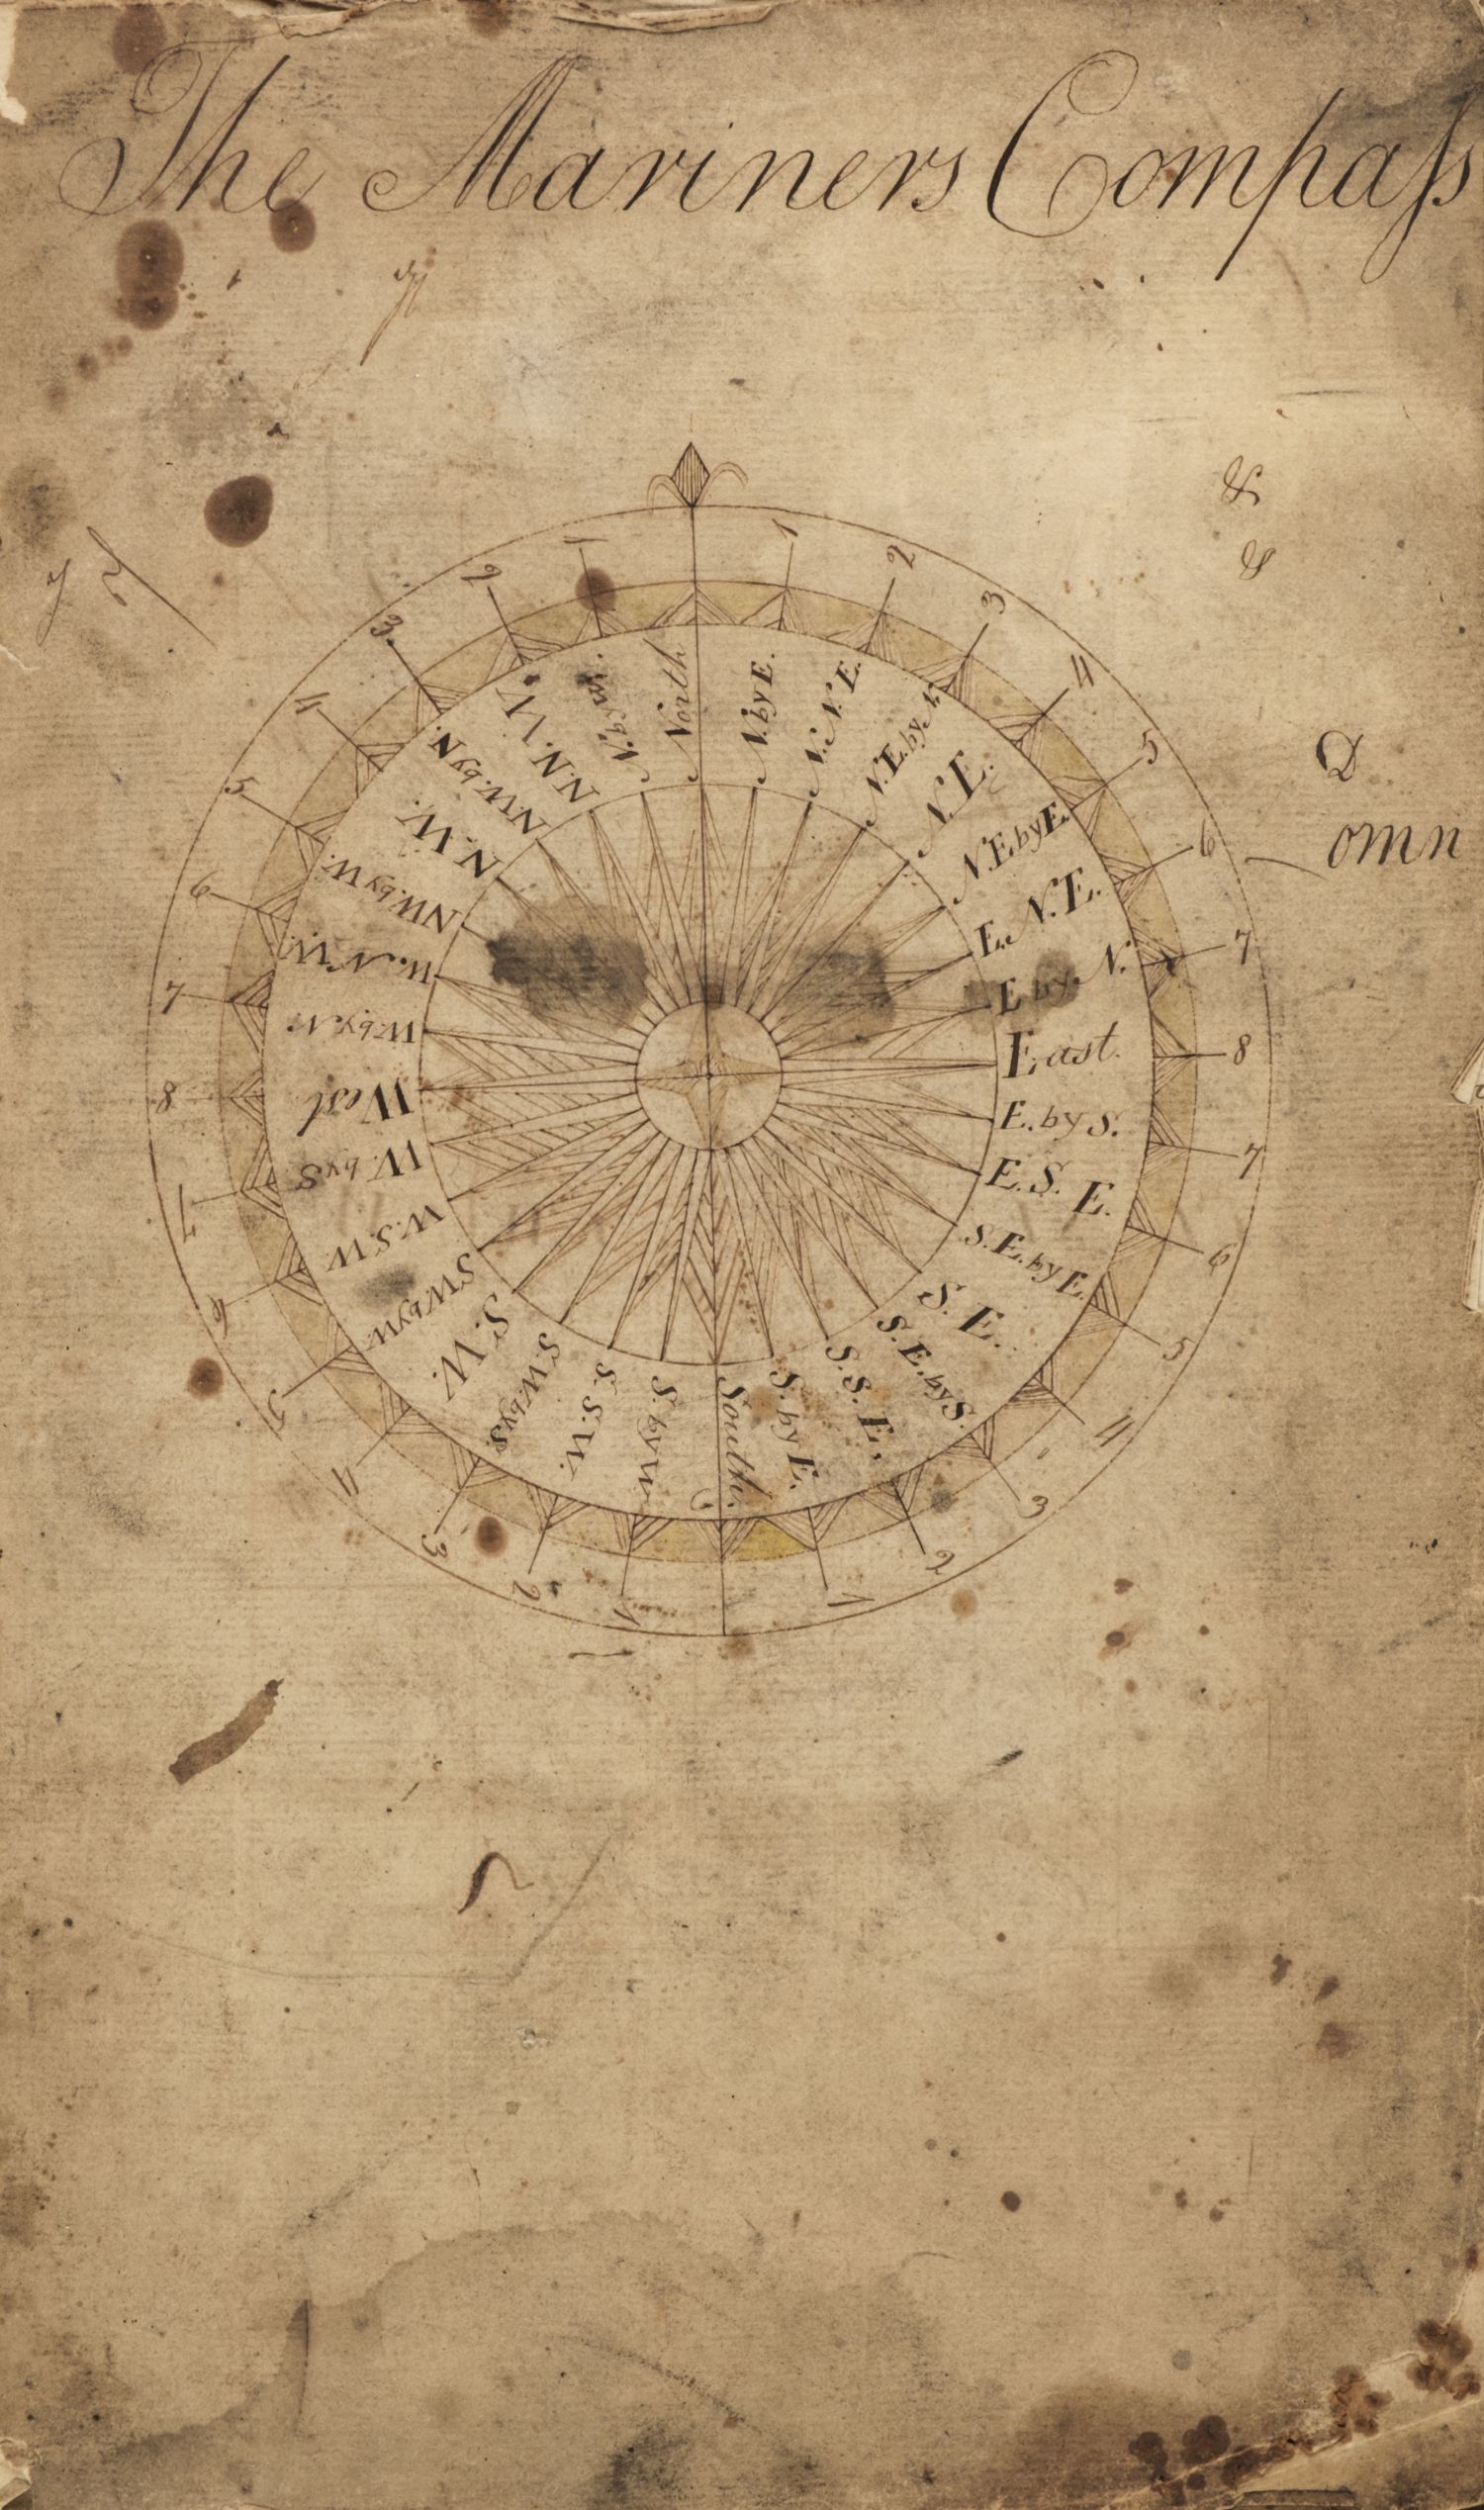 The Mariners Compaſs
&
&
Q
omn
North
N. by E.
N. N. E.
N. E. by N.
N. E.
N. E. by E.
E. N. E.
E by N.
East.
E. by S.
E. S. E.
S. E. by E.
S. E.
S. E. by S.
S. S. E.
S. by E.
South.
S. by W
S. S. W.
S. W by S
S. W.
S W by W.
W. S W
W. by S
West
W. by N
W. N. W.
NW. by W.
N. W.
N.W. by N.
N. N. W.
N. by W.
1
2
3
4
5
6
7
8
7
6
5
4
3
2
1
1
2
3
4
5
6
7
8
7
6
5
4
3
2
1